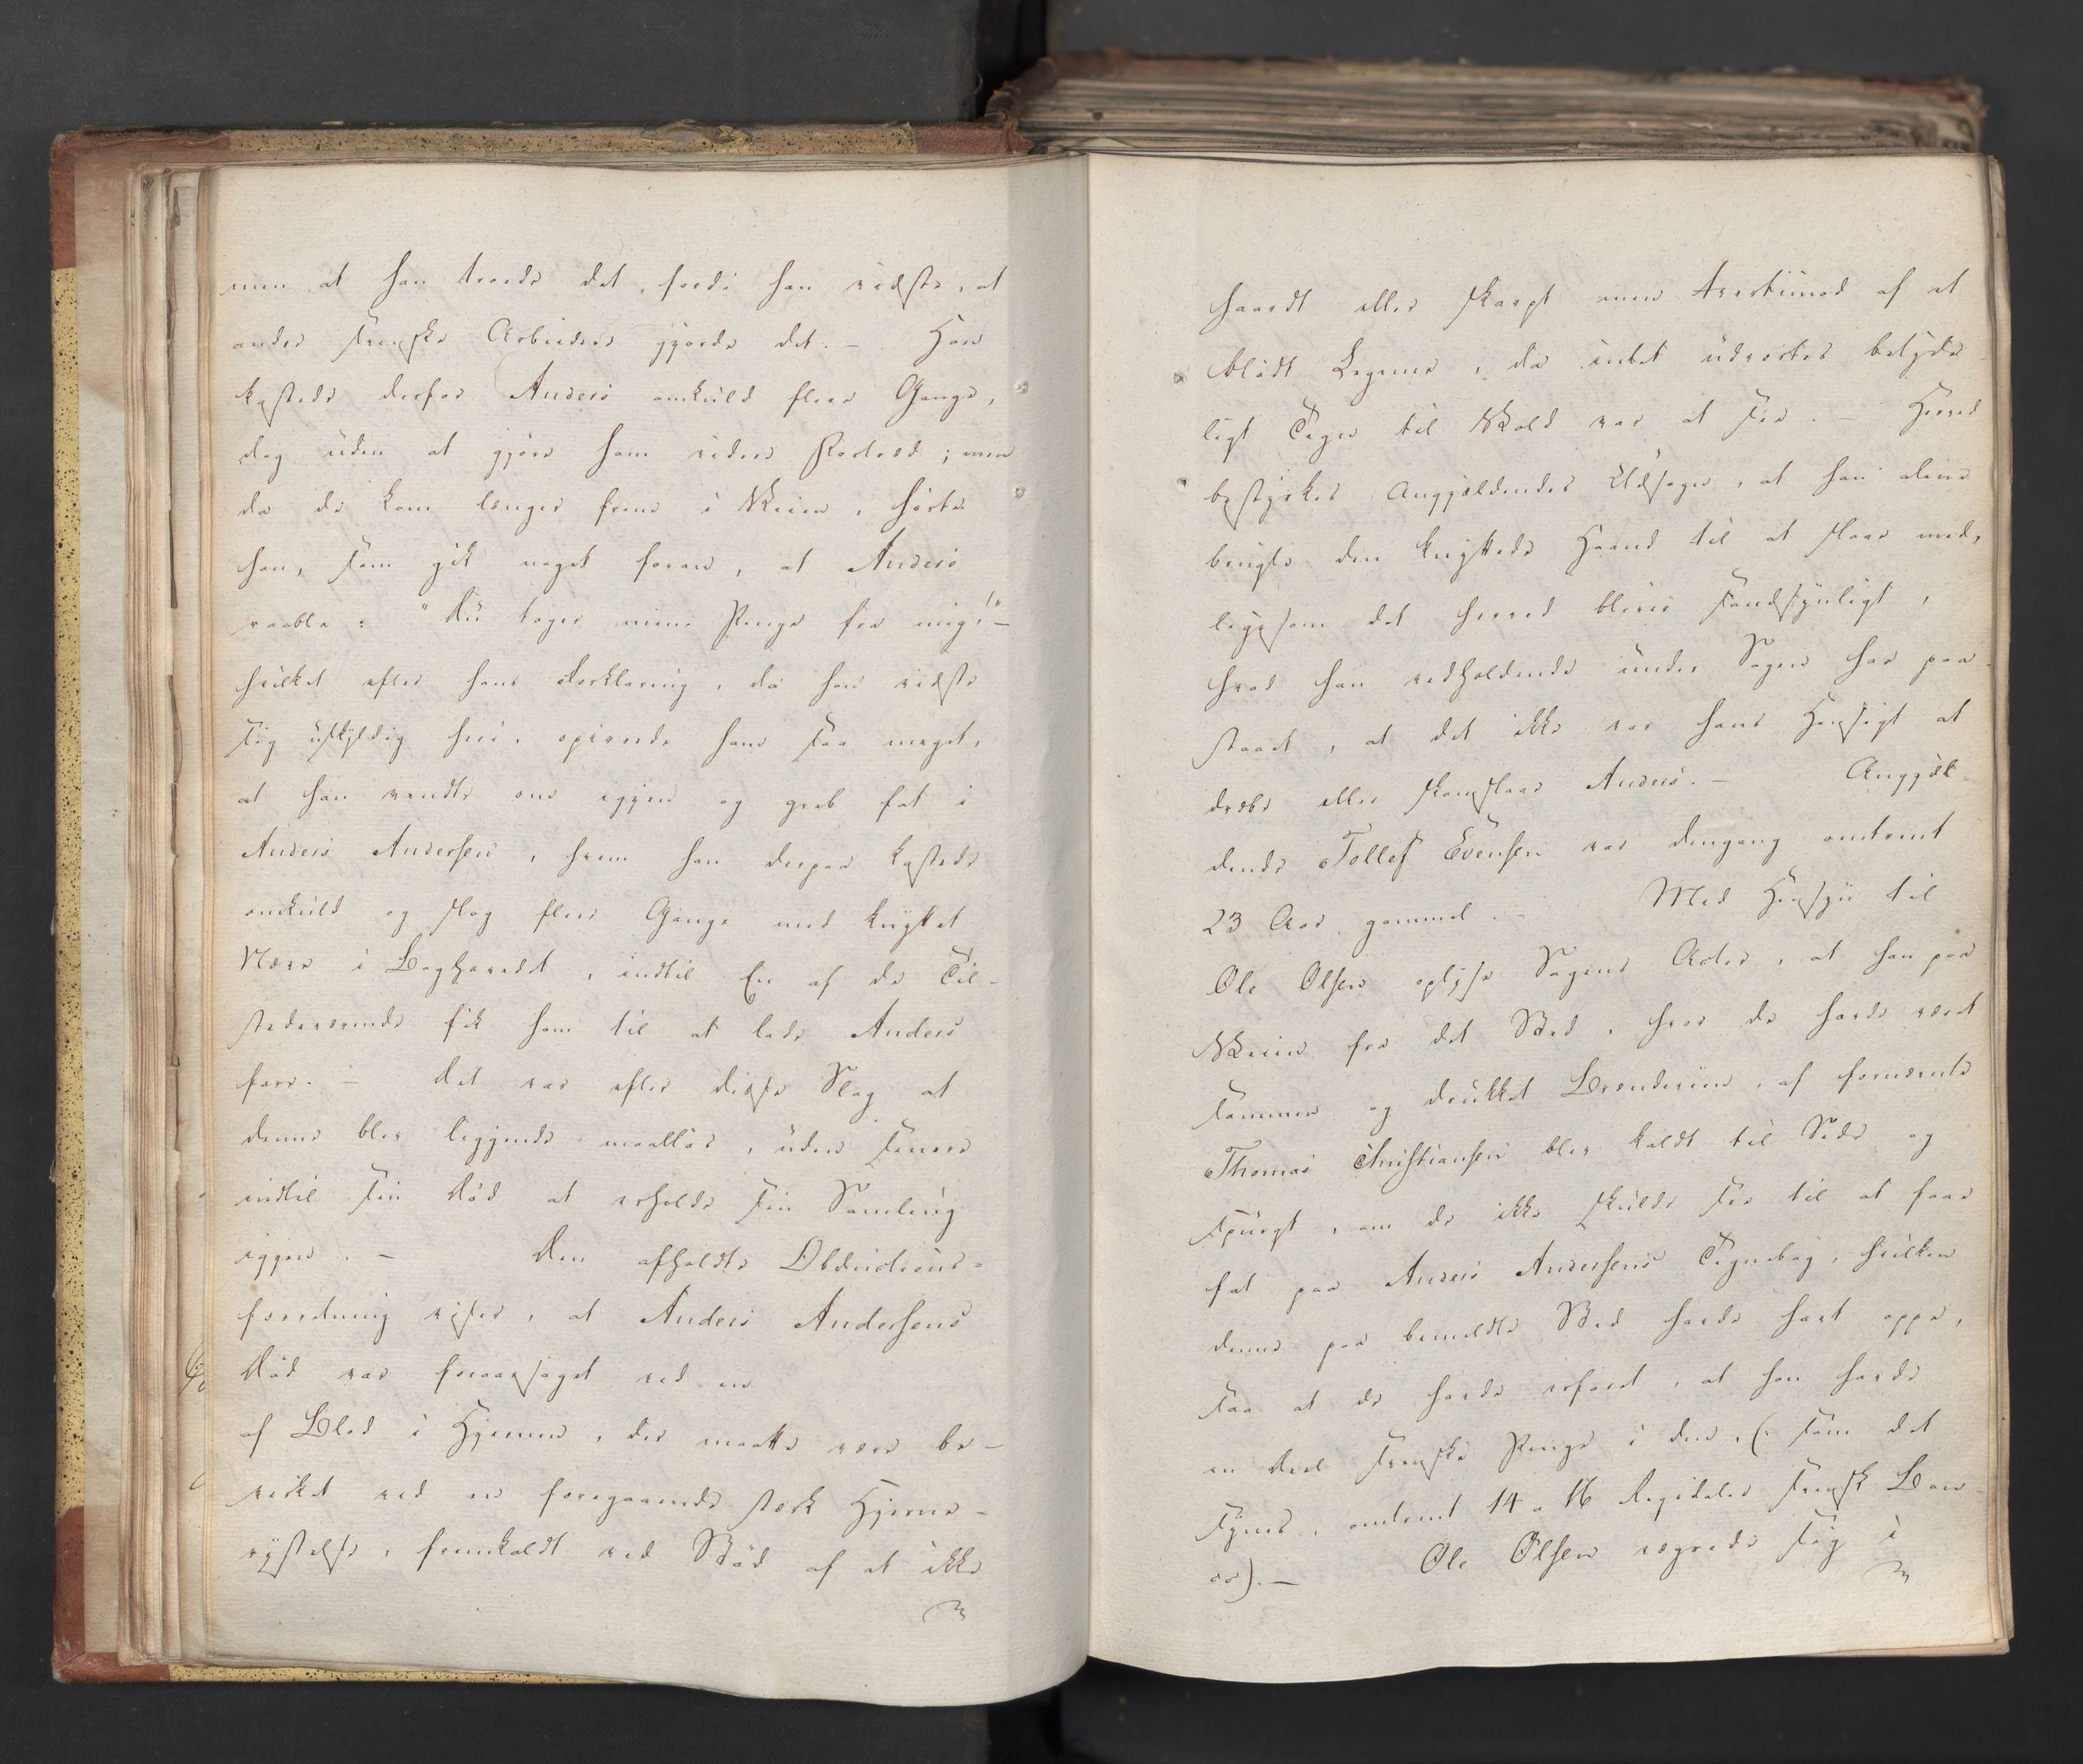 men at han troede det, fordi han vidste, at
andre svenske Arbeidere gjorde det. – Han
kastede derfor Anders omkuld flere Gange,
dog uden at gjøre ham videre Fortræd; men
da de kom længer frem i Veien, hørte
han, som gik noget foran, at Anders
raabte: "Du tager mine Penge fra mig!" –
hvilket efter hans Forklaring, da han vidste
sig uskyldig heri, opirrede ham saa meget,
at han vendte om igjen og greb fat i
Anders Andersen, hvem han derpaa kastede
omkuld og slog flere Gange med knyttet
Næve i Baghovedet, indtil En af de Til-
stedeværende fik ham til at lade Anders
fare. – Det var efter disse Slag at
denne blev liggende maalløs, uden senere
indtil sin Død at erholde sin Samling
iggen. – Den afholdte Obductions-
forretning viser, at Anders Andersens
Død var foraarsaget ved en
af Blod i Hjernen, der maatte være be-
virket ved en foregaaende stærk Hjerne-
rystelse, fremkaldt ved Stød af et ikke
haardt eller skarpt men tvertimod af et
blødt Legeme, da intet udvortes betyde-
ligt Tegn til Vold var at see. – Herved
bestyrkes Angjældendes Udsagn, at han alene
brugte den knyttede Haand til at slaae med,
ligesom det herved bliver sandsynligt,
hvad han vedholdende under Sagen har paa-
staaet, at det ikke var hans Hensigt at
dræbe eller skamslaae Anders. – Angjæl-
dende Tollef Evensen var dengang omtrent
23 Aar gammel. – Med Hensyn til
Ole Olsen oplyse Sagens Acter, at han paa
Veien fra det Sted, hvor de havde været
sammen og drukket Brændeviin, af fornævnte
Thomas Christiansen blev kaldt til Side og
spurgt, om de ikke skulde see til at faae
fat paa Anders Andersens Tegnebog, hvilken
denne paa bemeldte Sted havde havt oppe,
saa at de havde erfaret, at han havde
en Deel svenske Penge i den, (: som det
synes, omtrent 14 a 16 Rigsdaler svensk Ban-
co). – Ole Olsen vægrede sig i